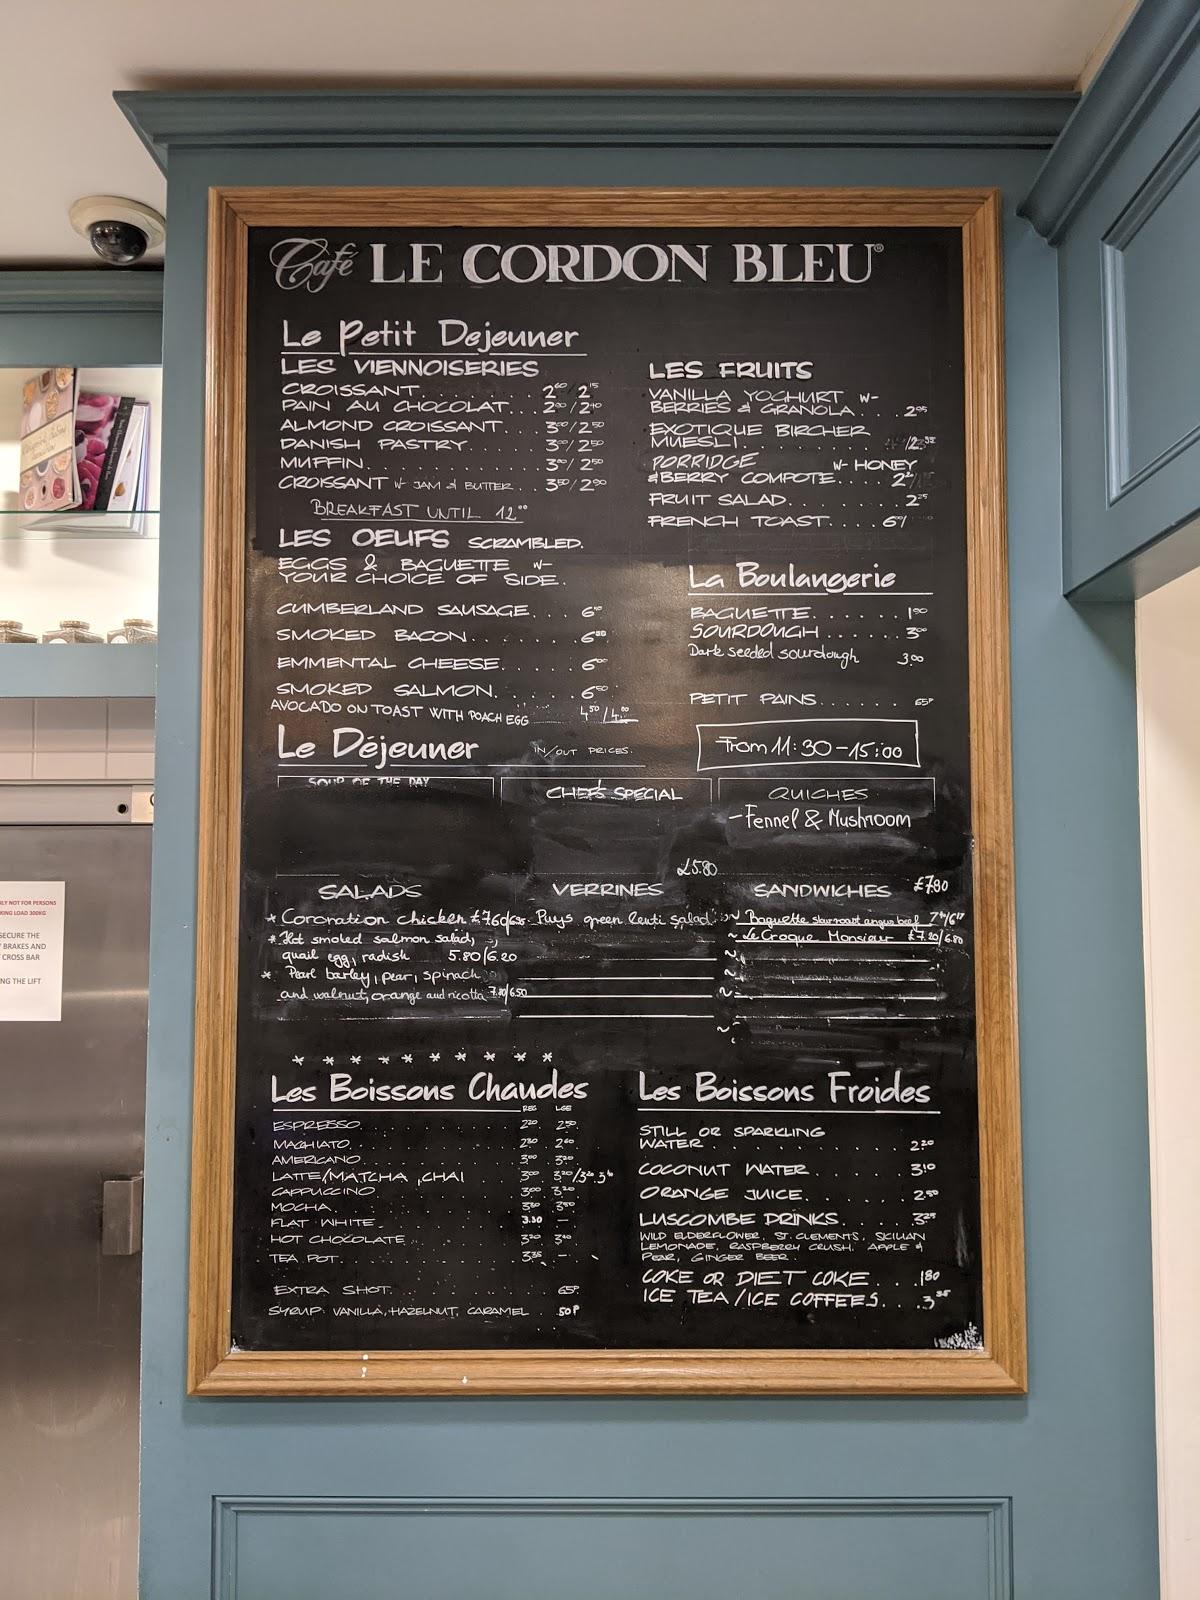 Café LE CORDON BLEU®
Le Petit Dejeuner
LES VIENNOISERIES
CROISSANT. 2⁶⁰/2¹⁵
PAIN AU CHOCOLAT... /2⁴⁰
ALMOND CROISSANT... 3⁰⁰/2⁵⁰
DANISH PASTRY. 3⁰⁰/2⁵⁰
MUFFIN. 3⁰⁰/2⁵⁰
CROISSANT W- JAM & BUTTER... 3⁵⁰/2⁹⁰
BREAKFAST UNTIL 12⁰⁰
LES OEUFS SCRAMBLED.
EGGS & BAGUETTE W-
YOUR CHOICE OF SIDE.
CUMBERLAND SAUSAGE...
SMOKED BACON
EMMENTAL CHEESE. 6⁰⁰
SMOKED SALMON. 6⁵⁰
AVOCADO ON TOAST WITH POACH EGG 4⁵⁰/4.⁰⁰
LES FRUITS
VANILLA YOGHURT W-
BERRIES & GRANOLA... 2⁹⁵
EXOTIQUE BIRCHER
MUESLI.
PORRIDGE W- HONEY
&BERRY COMPOTE....
FRUIT SALAD. 2²⁵
FRENCH TOAST....
La Boulangerie
BAGUETTE. 1⁹⁰
SOURDOUGH 3⁰⁰
Dark seeded sourdough 3.00
PETIT PAINS. 65P
Le Déjeuner IN/OUT PRICES.
From 11:30-15:00
SOUP OF THE DAY
CHEFS SPECIAL
£5.80
QUICHES
-Fennel & Mushroom
£7.80
SALADS
* Coronation chicken
* Hot smoked salmon salad,
quail egg, radish 5.80/6.20
* Pearl barley, pear, spinach
and walnut, orange and ricotta
VERRINES
Puys green lenti salad
SANDWICHES
~ Baguette slow roast angus beef
~ Le Croque Monsieur £7.20/6.80
* * * * * * * * * *
Les Boissons Chaudes
REG LGE
ESPRESSO. 2²⁰ 2⁵⁰
MACHIATO. 2³⁰ 2⁶⁰
AMERICANO. 3⁰⁰ 3²⁰
LATTE/MATCHA ,CHAI 3⁰⁰
CAPPUCCINO 3⁰⁰ 3²⁰
MOCHA.
FLAT WHITE. 3.30 -
HOT CHOCOLATE 3²⁰ 3⁴⁰
TEA POT. 3³⁵ -
EXTRA SHOT. 65P.
SYRUP: VANILLA, HAZELNUT, CARAMEL .50P
Les Boissons Froides
STILL OR SPARKLING
WATER 2²⁰
COCONUT WATER 3¹⁰
ORANGE JUICE. 2⁹⁰
LUSCOMBE DRINKS. 3²⁵
WILD ELDERFLOWER, ST. CLEMENTS, SICILIAN
LEMONADE, RASPBERRY CRUSH. APPLE &
PEAR, GINGER BEER.
COKE OR DIET COKE ...180
ICE TEA/ICE COFFEES...3³⁵
LY NOT FOR PERSONS
KING LOAD 300KG
SECURE THE
BRAKES AND
CROSS BAR
NG THE LIFT